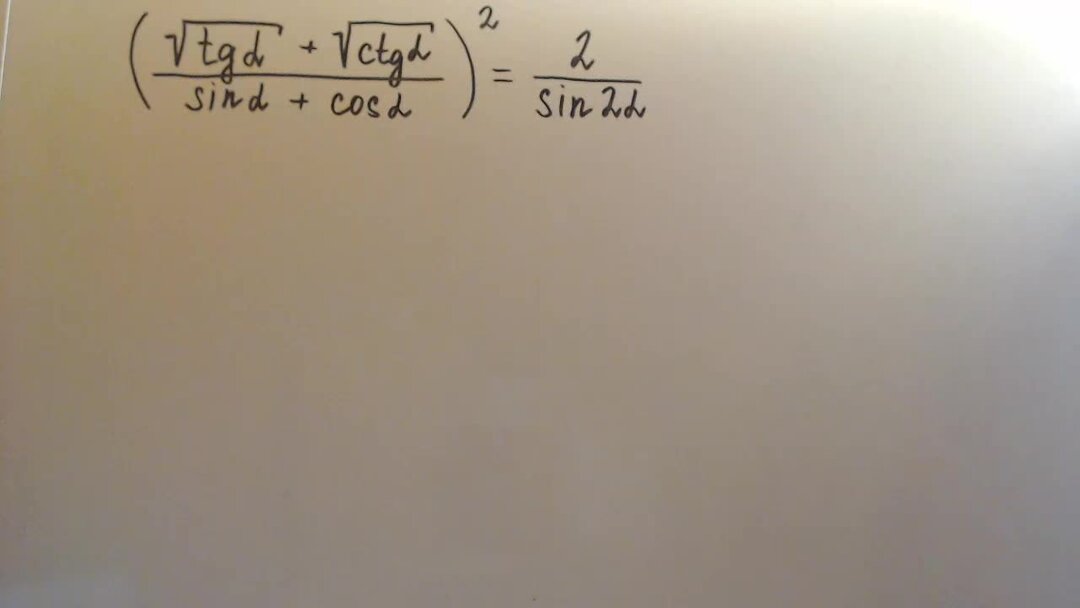 (√tgα + √ctgα / sinα + cosα)² = 2 / sin2α